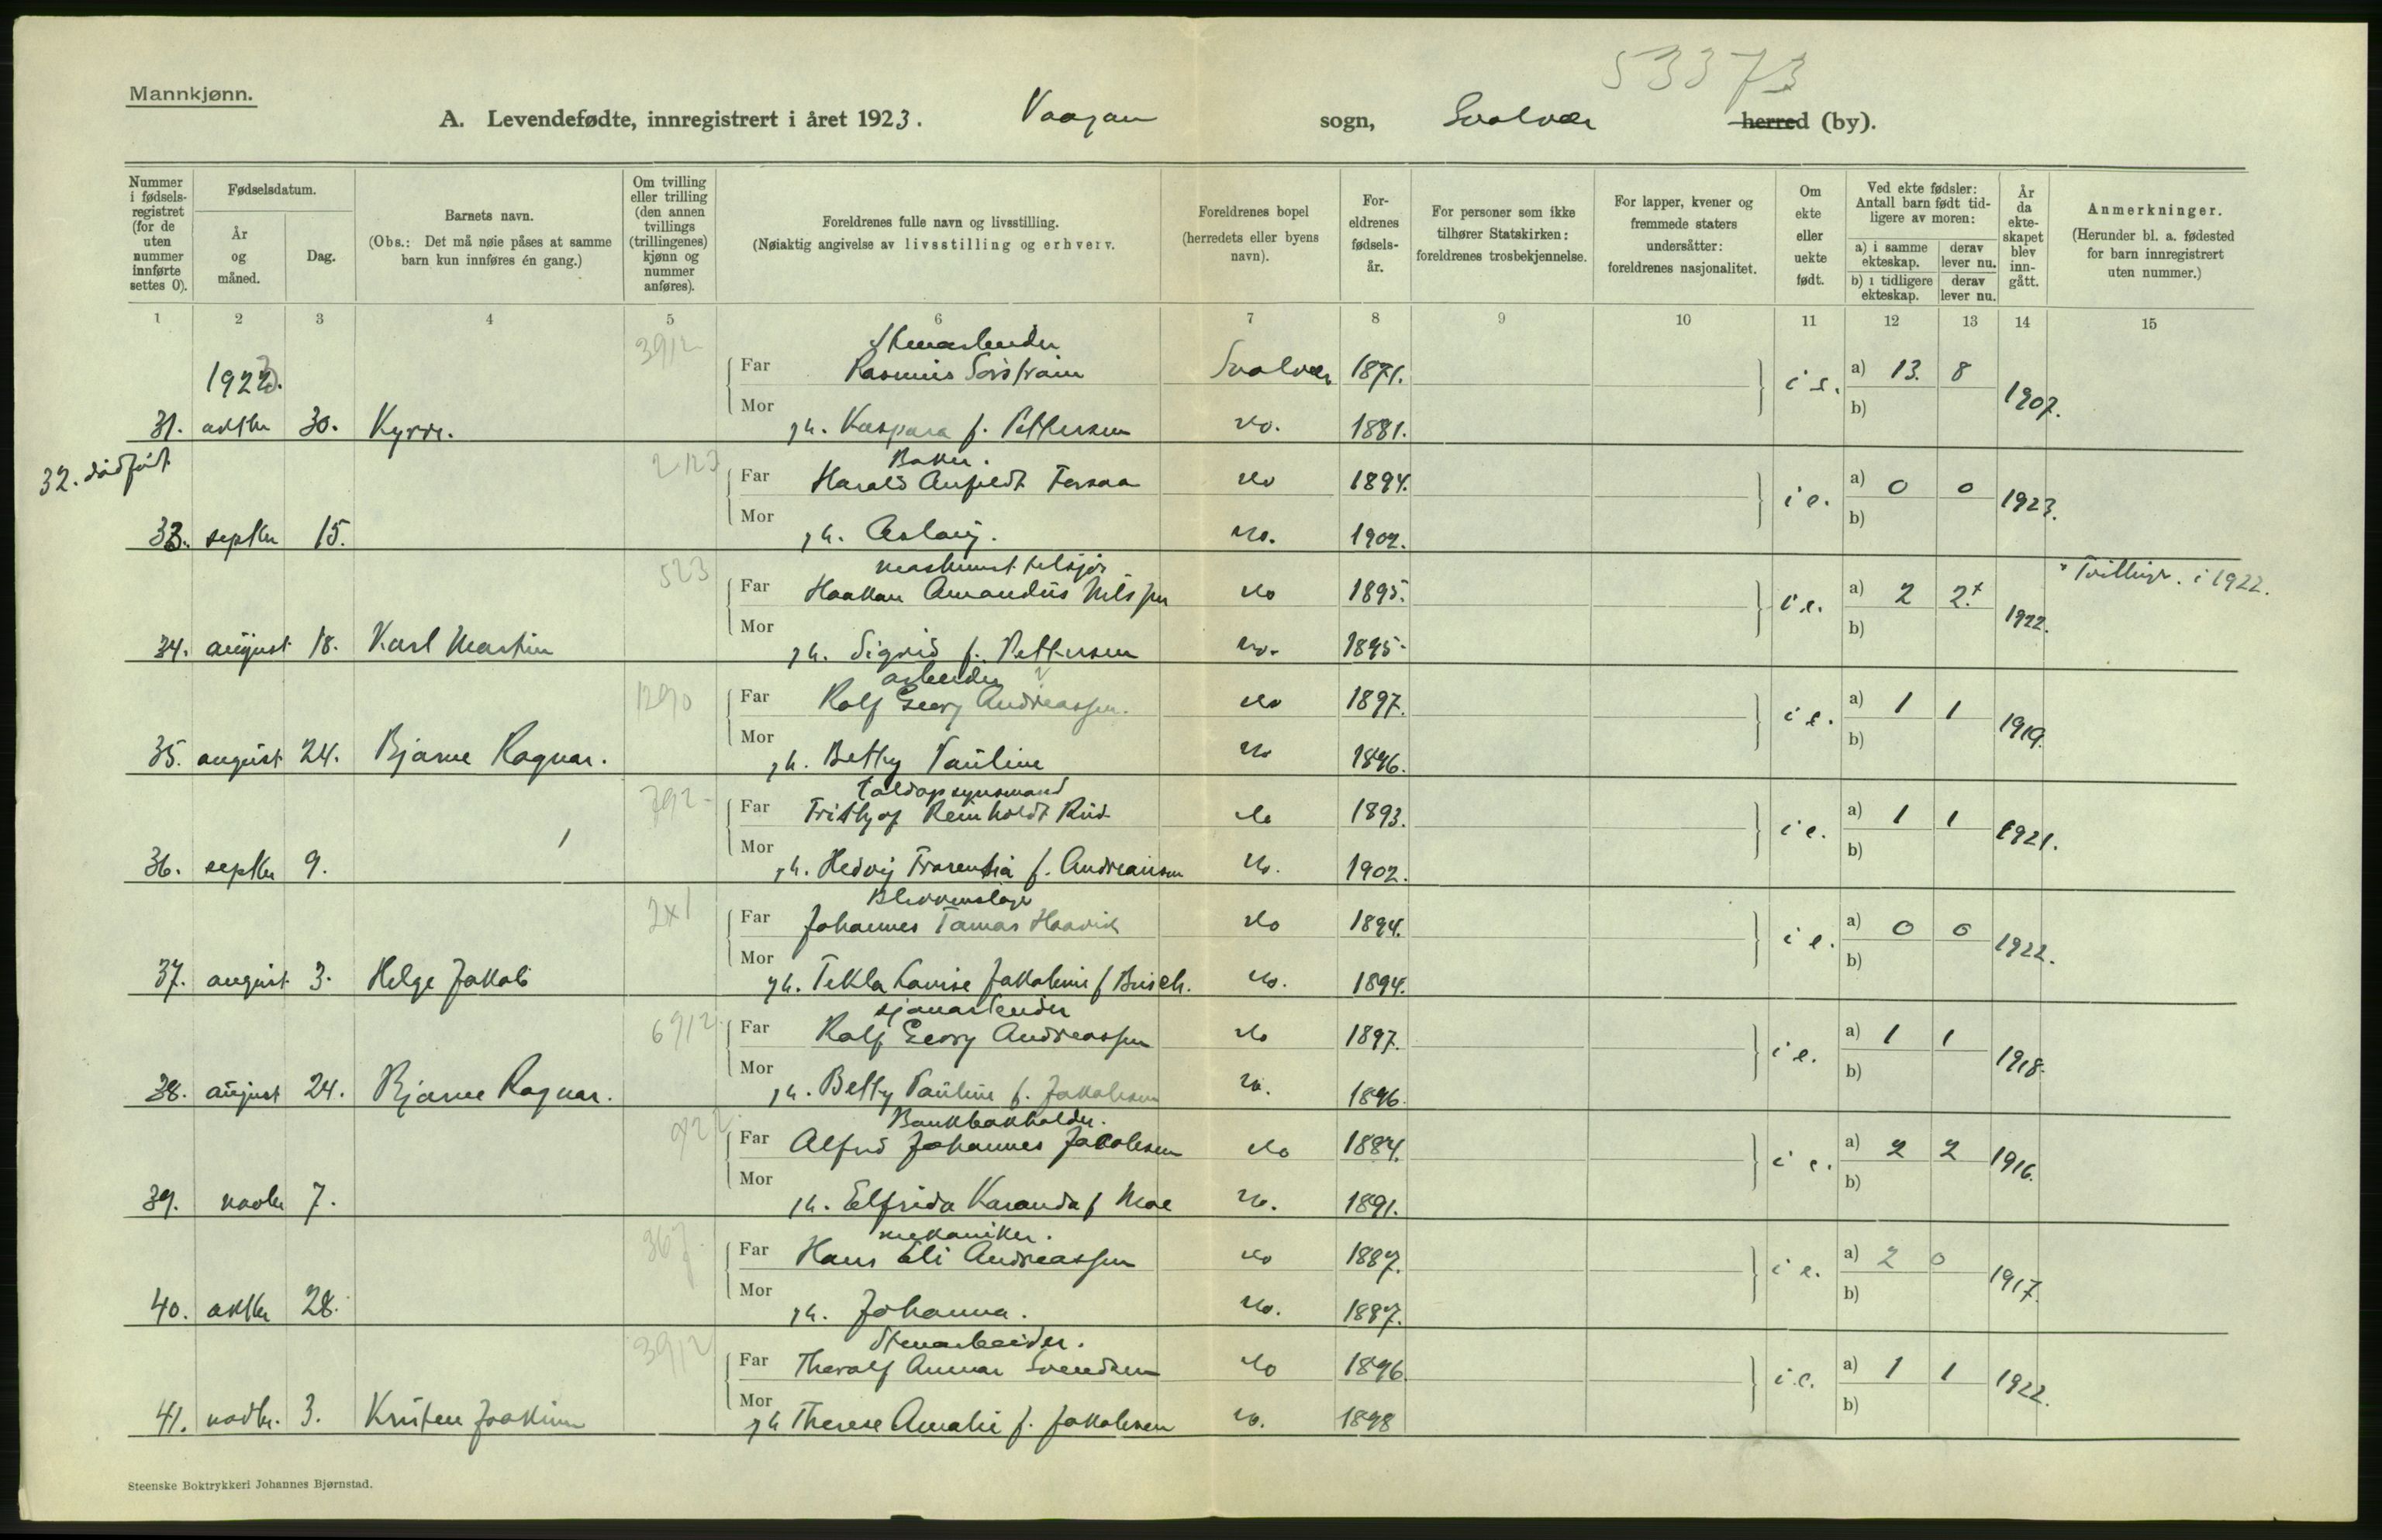 53373
Mannkjønn.
A. Levendefødte, innregistrert i året 1923. Vaagan sogn, Svolvær herred (by).
Nummer i fødselsregistret (for de uten nummer innførte settes 0).
Fødselsdatum.
År og måned.
Dag.
Barnets navn.
(Obs.: Det må nøie påses at samme barn kun innføres én gang.)
Om tvilling eller trilling (den annen tvillings (trillingenes) kjønn og nummer anføres).
Foreldrenes fulle navn og livsstilling.
(Nøiaktig angivelse av livsstilling og erhverv.
Foreldrenes bopel (herredets eller byens navn).
Foreldrenes fødselsår.
For personer som ikke tilhører Statskirken: foreldrenes trosbekjennelse.
For lapper, kvener og fremmede staters undersåtter: foreldrenes nasjonalitet.
Om ekte eller uekte født.
Ved ekte fødsler: Antall barn født tidligere av moren:
a) i samme ekteskap.
derav lever nu.
b) i tidligere ekteskap.
derav lever nu.
År da ekteskapet blev inngått.
Anmerkninger.
(Herunder bl. a. fødested for barn innregistrert uten nummer.)
1 2 3 4 5 6 7 8 9 10 11 12 13 14 15
3912 Stenarbeider
1923. Far Rasmus Svolvær 1871. i e. a) 13. 8 1907.
31. oktbr 30. Kyrre. Mor h. Kaspara f. Pettersen do. 1881. b)
32. dødfødt
Baker.
Far Harald Torsaa do 1894. i e. a) 0 0 1923.
33. septbr 15. Mor h. Aslaug. do. 1902. b)
523 maskinist
Far Haakon Amandus Nilssen do 1895. i e. a) 2 2.+ 1922. + Tvillinger. i 1922.
34. august 18. Karl Martin Mor h. Sigrid f. Pettersen do. 1895. b)
1290 arbeider
Far Rolf Georg Andreassen. do 1897. i e. a) 1 1 1919.
35. august 24. Bjarne Ragnar. Mor h. Betty Pauline do 1896. b)
792 Toldopsynsmand
Far Frithjof Reinholdt Rud do 1893. i e. a) 1 1 1921.
36. septbr 9. Mor h. Hedvig f. Andreassen do. 1902. b)
2x1 Blikkenslager
Far Johannes Tomas Haavik do 1894. i e. a) 0 0 1922.
37. august 3. Helge Jakob Mor h. Tekla Louise Jakobine f Busch. do. 1894. b)
6912 sjauarbeider
Far Rolf Georg Andreassen do 1897. i e. a) 1 1 1918.
38. august 24. Bjarne Ragnar. Mor h. Betty Pauline f. Jakobsen do. 1896. b)
Bankbokholder.
Far Alfred Johannes Jacobsen do 1884. i e. a) 2 2 1916.
39. novbr 7. Mor h. Elfrida f Moe do. 1891. b)
367 mekaniker.
Far Hans Eli Andreassen do 1887. i e. a) 2 0 1917.
40. oktbr 28. Mor h. Johanna. do. 1887. b)
3912 Stenarbeider.
Far Thoralf Svendsen do 1896 i e. a) 1 1 1922.
41. novbr. 3. Kristen Joakim Mor h Therese Amalie f. Jakobsen do. 1898 b)
Steenske Boktrykkeri Johannes Bjørnstad.